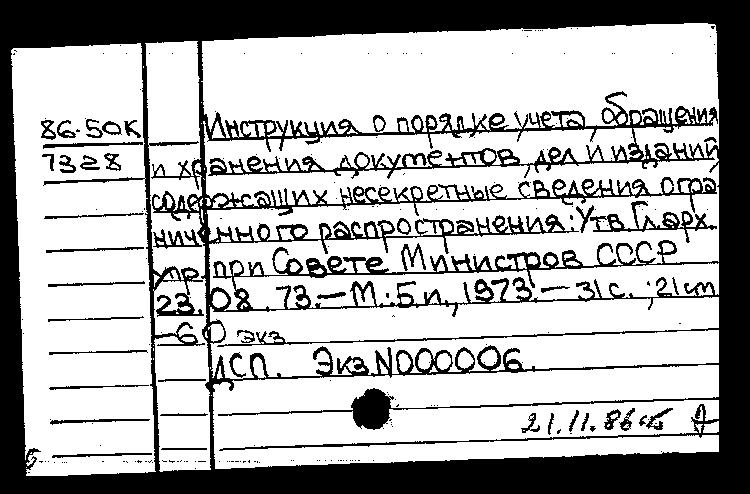 86-50К Инструкция о порядке учета, обращения
7328 и хранения документов, дел и изданий
содержащих несекретные сведения огра-
ниченного распространения: Утв. Гл. арх.
упр. при Совете Министров СССР
23.08.73.— М.: Б.и., 1973.— 31с. ; 21см
—60 экз
ДСП. Экз.N000006.
21.11.86